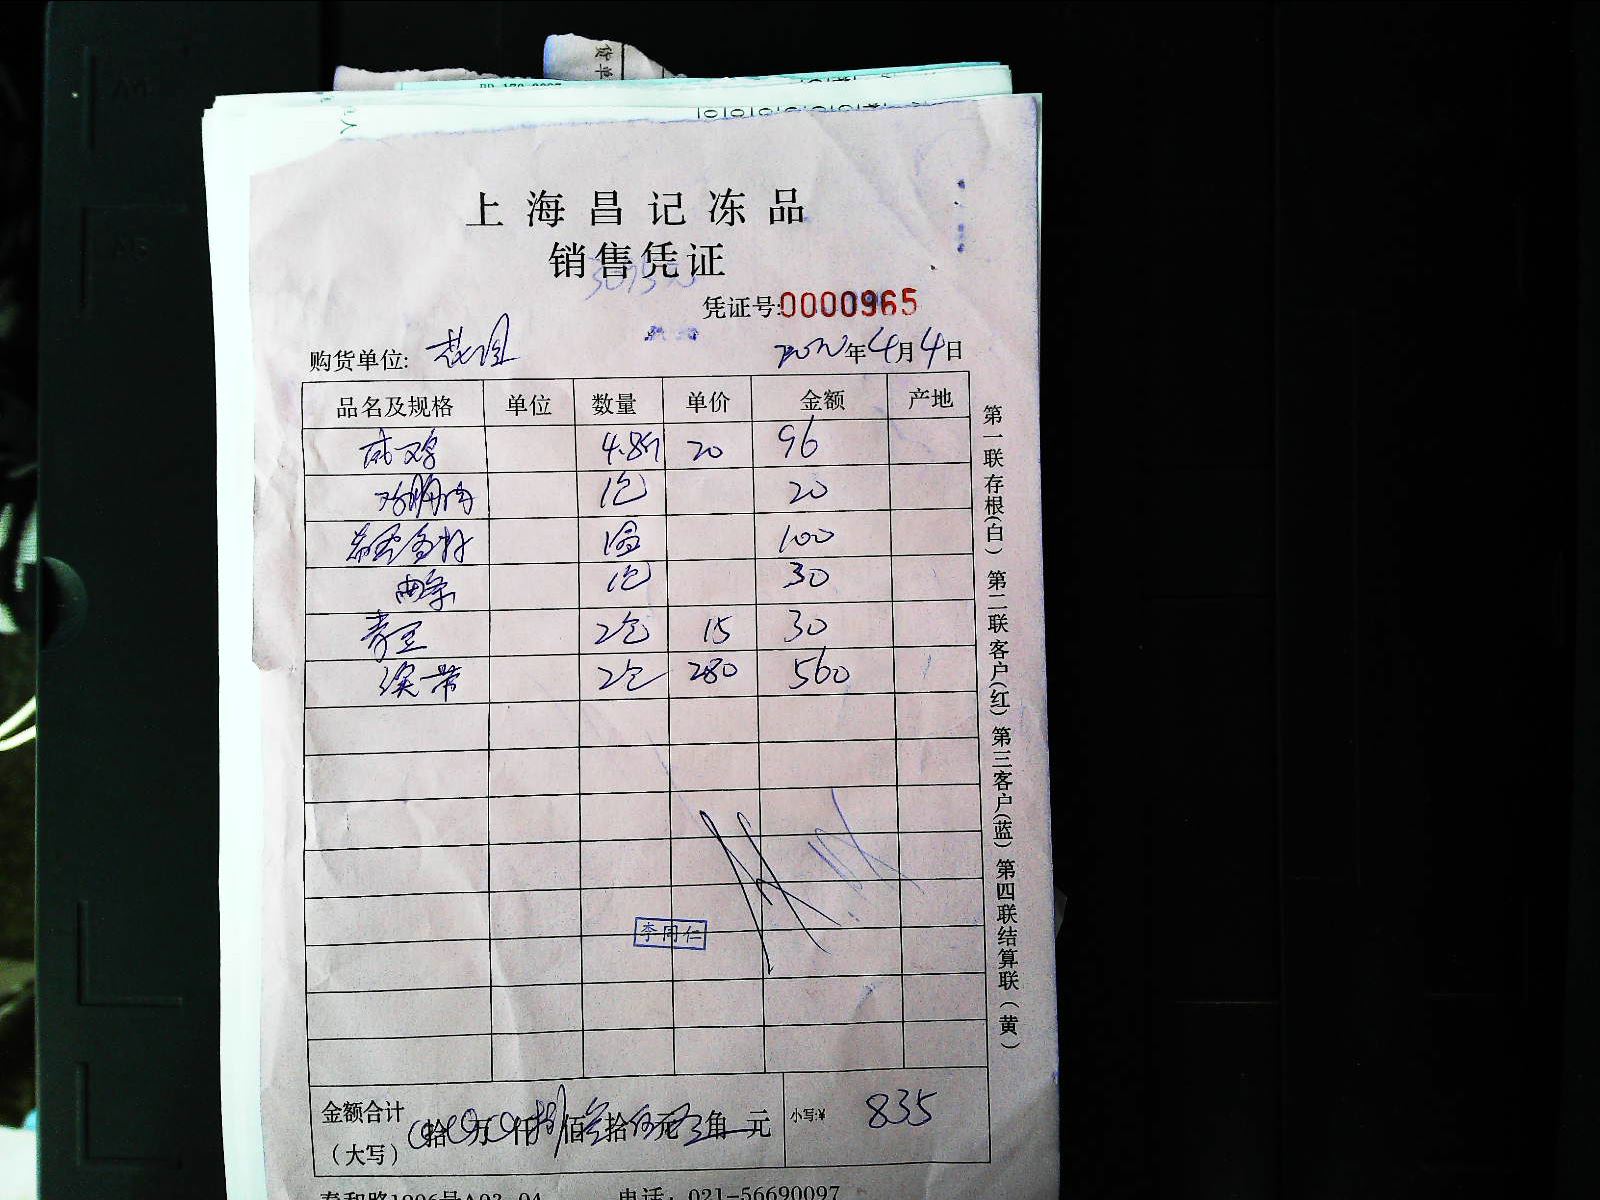 货单
上海昌记冻品
销售凭证
凭证号:0000965
购货单位: 年4月4日
品名及规格 单位 数量 单价 金额 产地
咸鸡 4.8斤 20 96
鸡脯肉 1包 20
1盒 100
1包 30
青豆 2包 15 30
2包 280 560
李同仁
金额合计 拾万仟捌佰叁拾伍元角元 小写:¥ 835
（大写）
第一联存根(白) 第二联客户(红) 第三客户(蓝) 第四联结算联(黄)
电话: 021-56690097